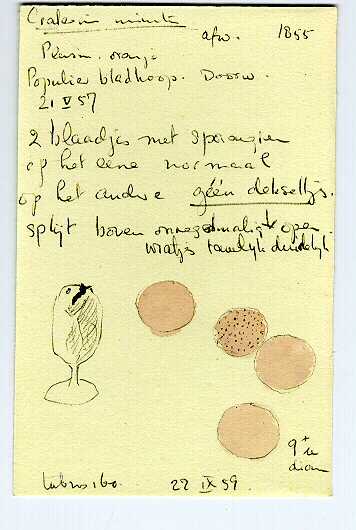 Craterium minut
afw. 1855
Plasm. oranje
Populier bladhoop. Doorw.
21 V 57
2 blaadjes met sporangiën
op het eene normaal
op het andre géén dekseltjs.
splijt boven onregelmatig open
wratjes tamelijk duidelijk
9 +
diam
22 IX 59.